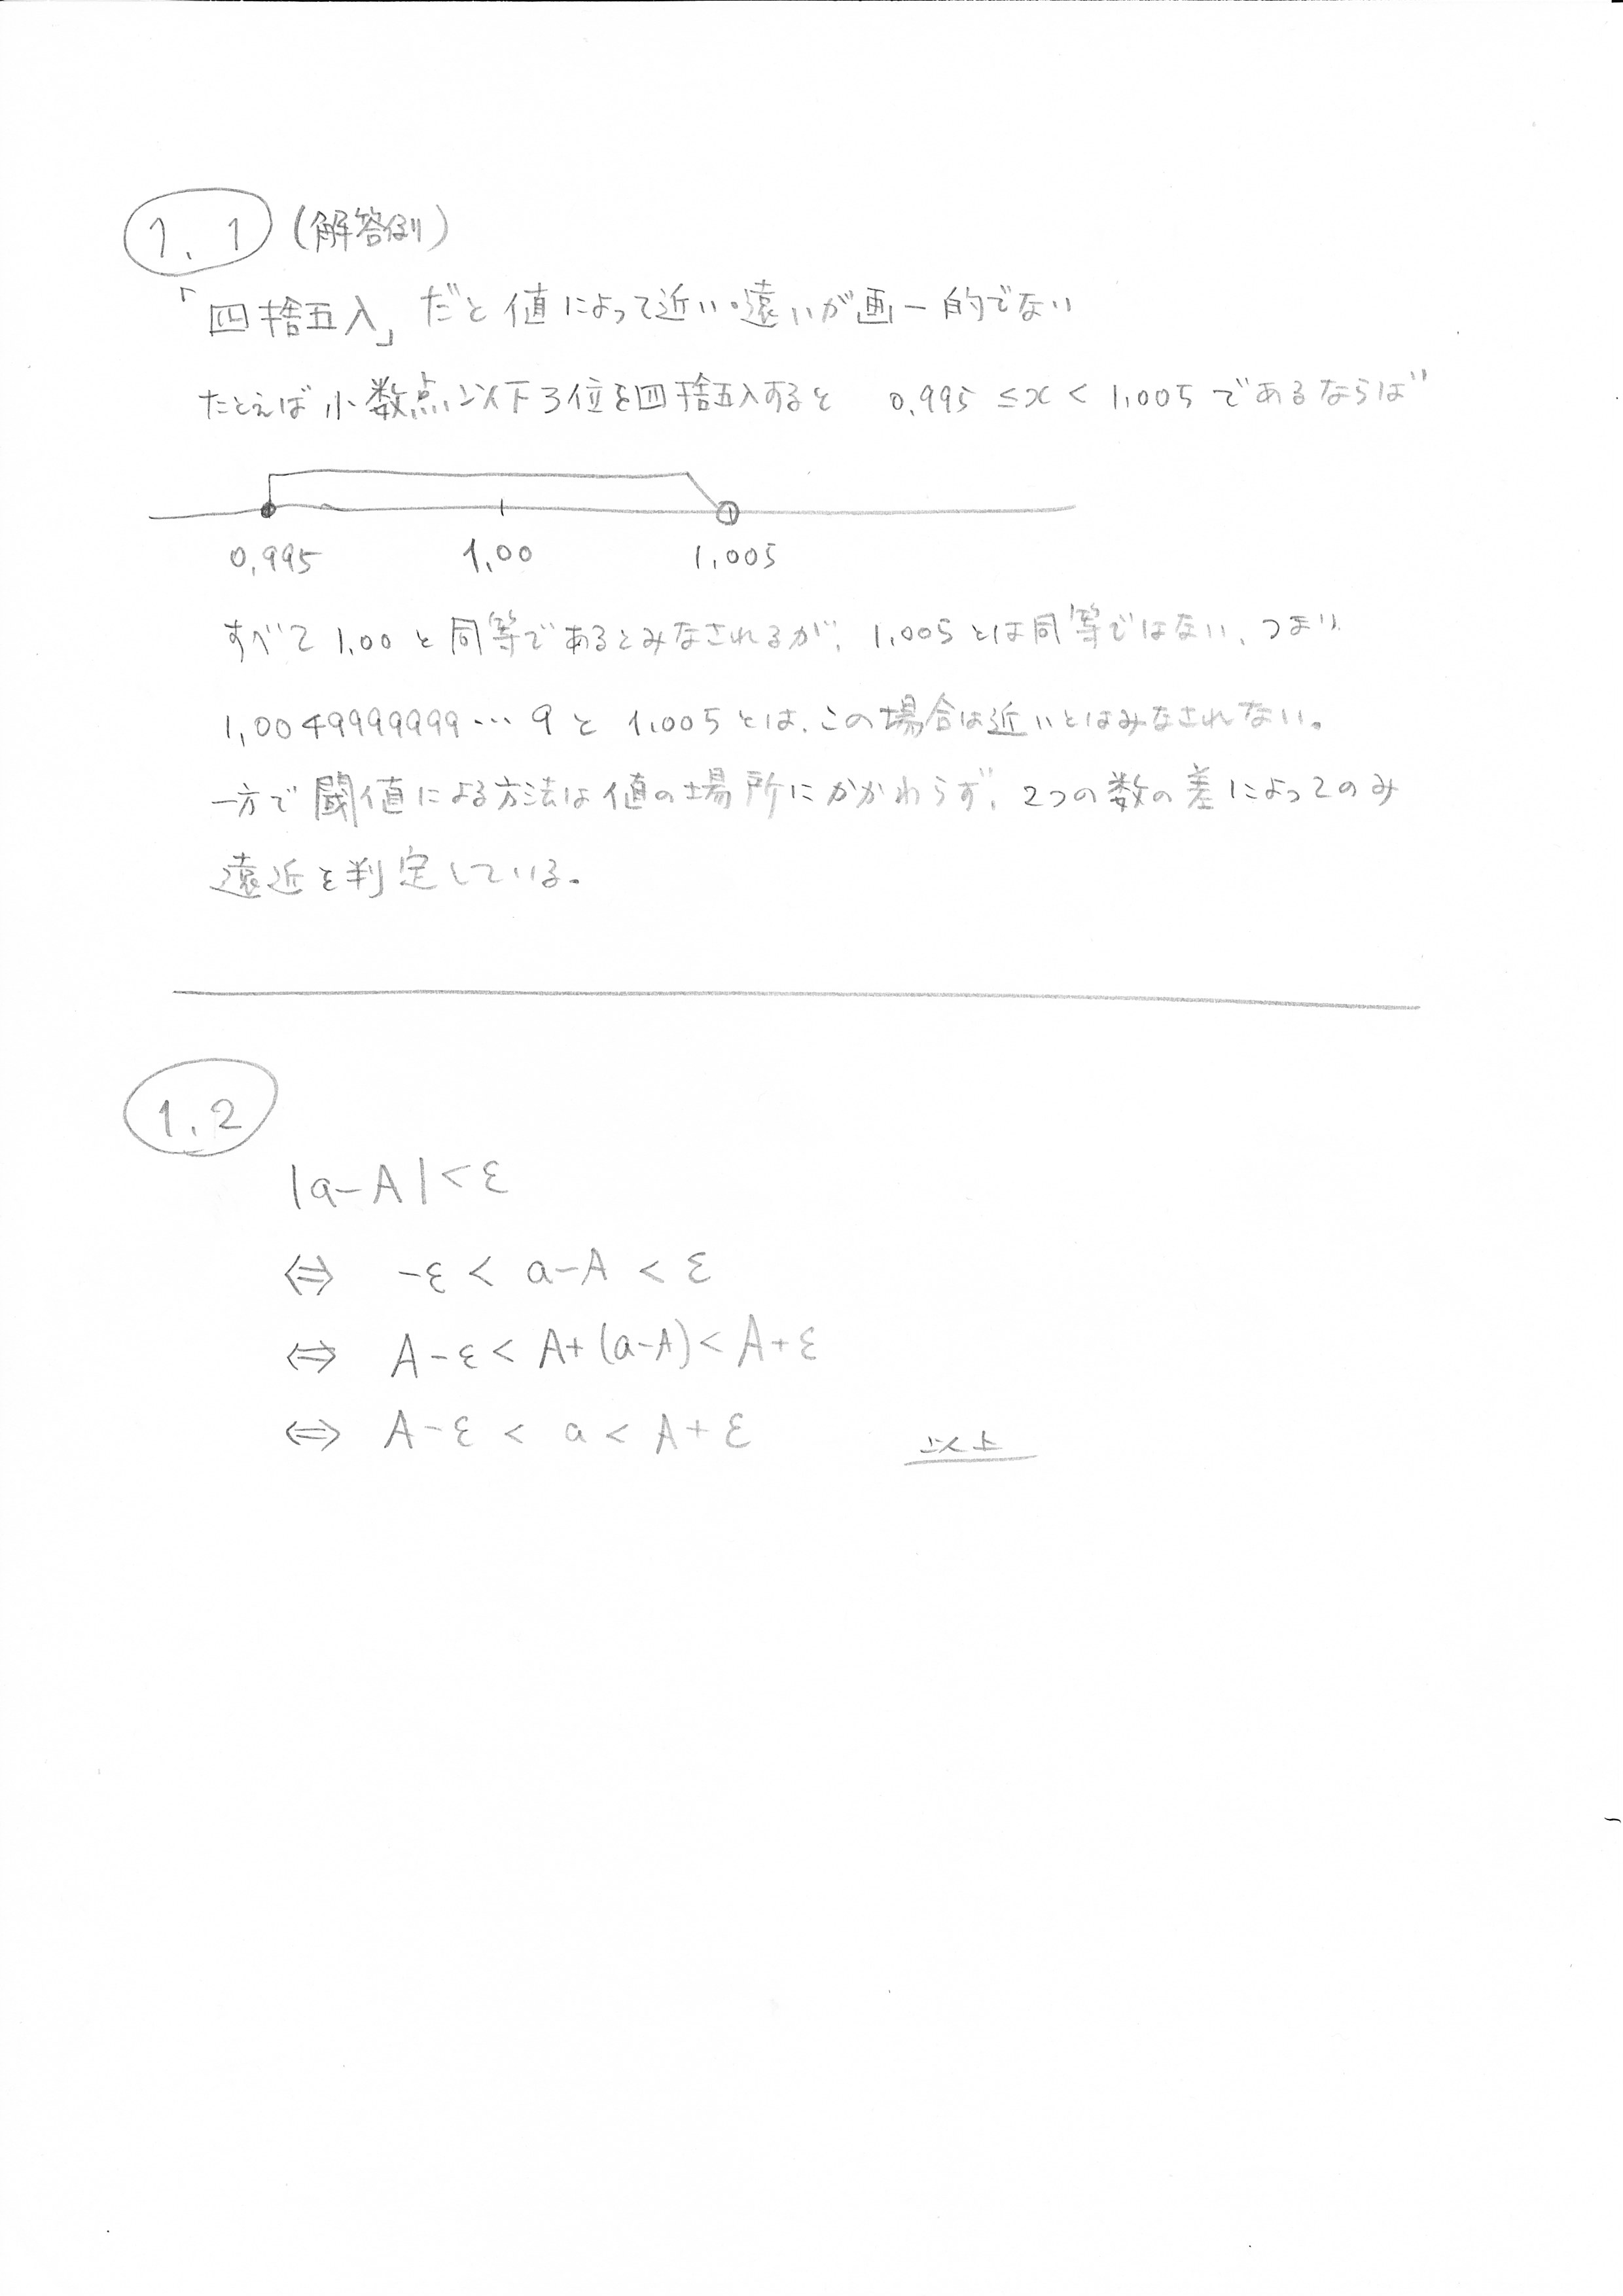 1.1 (解答例)
「四捨五入」だと値によって近い・遠いが画一的でない
たとえば小数点以下3位を四捨五入すると 0.995 ≤ x < 1.005 であるならば
0.995 1.00 1.005
すべて 1.00 と同等であるとみなされるが、1.005とは同等ではない、つまり
1.0049999999…9 と 1.005とは、この場合は近いとはみなされない。
一方で閾値による方法は値の場所にかかわらず、2つの数の差によってのみ
遠近を判定している。
1.2
|a-A|<ε
⇔ -ε < a-A < ε
⇔ A-ε < A+(a-A) < A+ε
⇔ A-ε < a < A+ε 以上